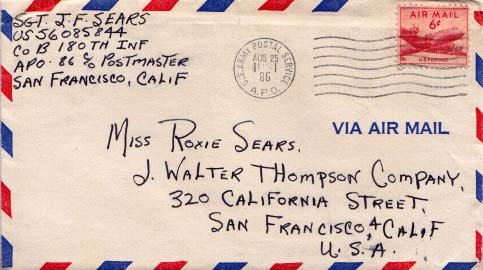 SGT. J. F. SEARS
US 56085844
CO B 180TH INF
APO. 86 C/O POSTMASTER
SAN FRANCISCO, CALIF
U.S. ARMY POSTAL SERVICE
AUG 25
86
A.P.O.
AIR MAIL
6¢
U.S. POSTAGE
VIA AIR MAIL
MISS ROXIE SEARS.
J. WALTER THOMPSON COMPANY,
320 CALIFORNIA STREET,
SAN FRANCISCO 4, CALIF
U.S.A.